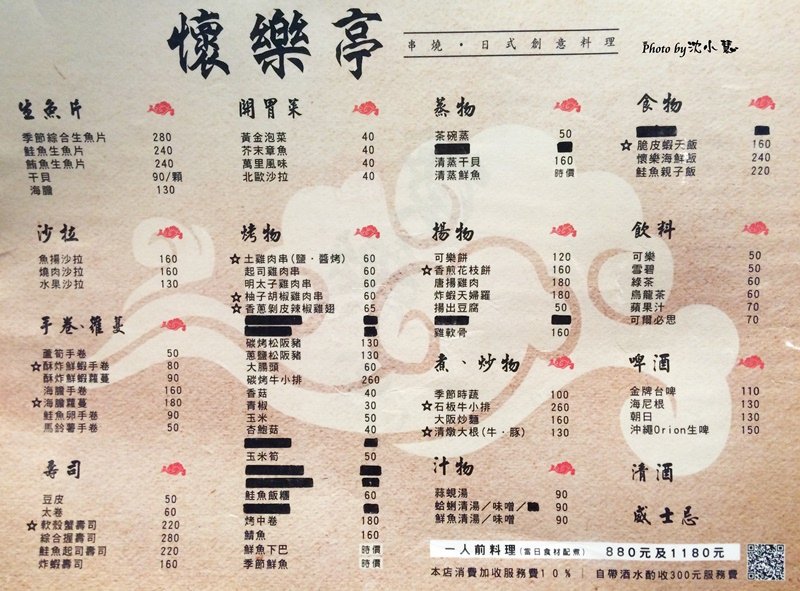 懷樂亭
串燒・日式創意料理
Photo by 沈小慧
生魚片
季節綜合生魚片 280
鮭魚生魚片 240
鮪魚生魚片 240
干貝 90/顆
海膽 130
沙拉
魚揚沙拉 160
燒肉沙拉 160
水果沙拉 130
手卷、羅蔓
蘆筍手卷 50
☆酥炸鮮蝦手卷 80
酥炸鮮蝦蘿蔓 90
海膽手卷 160
☆海膽蘿蔓 180
鮭魚卵手卷 90
馬鈴薯手卷 50
壽司
豆皮 50
太卷 60
☆軟殼蟹壽司 220
綜合握壽司 220
鮭魚起司壽司 220
炸蝦壽司 160
開胃菜
黃金泡菜 40
芥末章魚 40
萬里風味 40
北歐沙拉 40
烤物
☆土雞肉串(鹽・醬烤) 60
起司雞肉串 60
明太子雞肉串 60
☆柚子胡椒雞肉串 60
☆香蔥剝皮辣椒雞翅 65
碳烤松阪豬 130
蔥鹽松阪豬 130
大腸頭 60
碳烤牛小排 260
香菇 40
青椒 30
玉米 50
杏鮑菇 40
玉米筍 50
鮭魚飯糰 60
烤中卷 180
鯖魚 160
鮮魚下巴 時價
季節鮮魚 時價
蒸物
茶碗蒸 50
清蒸干貝 160
清蒸鮮魚 時價
揚物
可樂餅 120
☆香煎花枝餅 160
唐揚雞肉 180
炸蝦天婦羅 180
揚出豆腐 50
雞軟骨 160
煮、炒物
季節時蔬 100
☆石板牛小排 260
大阪炒麵 160
☆清燉大根(牛・豚) 130
汁物
蒜蜆湯 90
蛤蜊清湯/味噌/ 90
鮮魚清湯/味噌 90
食物
☆脆皮蝦天飯 160
懷樂海鮮飯 240
鮭魚親子飯 220
飲料
可樂 50
雪碧 50
綠茶 60
烏龍茶 60
蘋果汁 70
可爾必思 70
啤酒
金牌台啤 110
海尼根 130
朝日 130
沖繩Orion生啤 150
清酒
威士忌
一人前料理(當日食材配煮) 880元及1180元
本店消費加收服務費10%｜自帶酒水酌收300元服務費